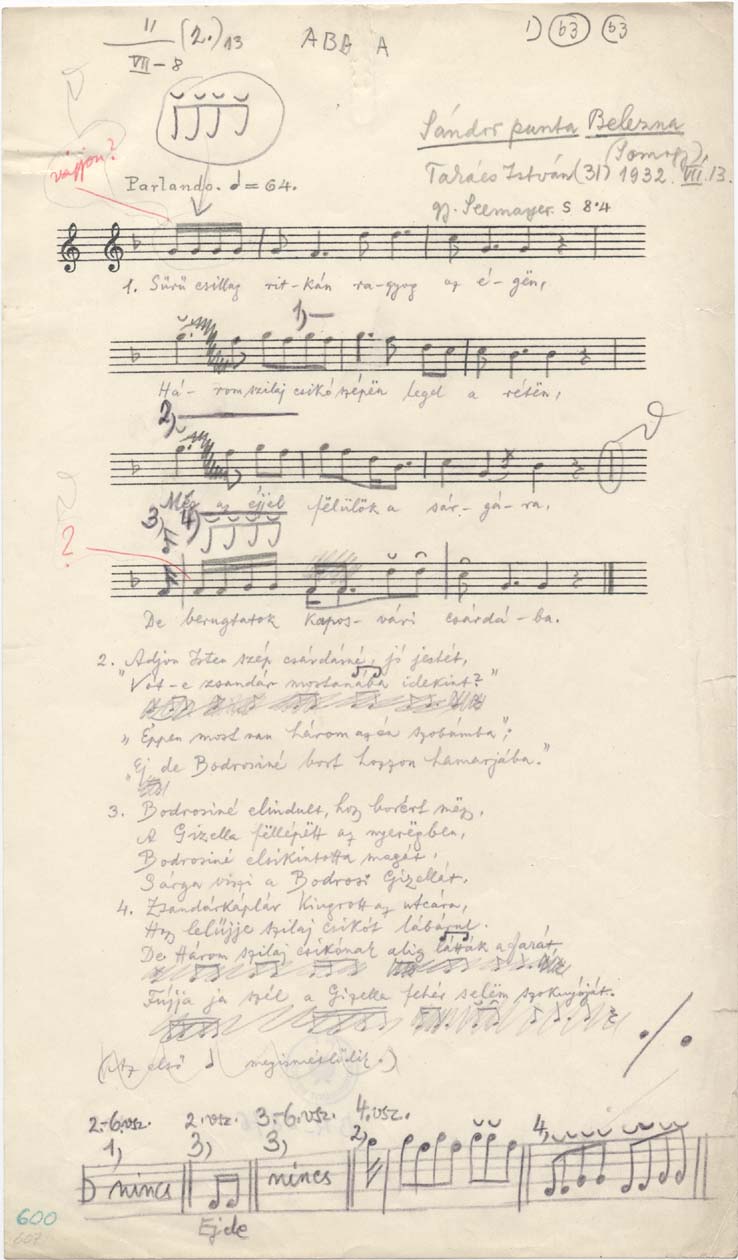 II (2.) 13
VII-8
ABBA
1) b3 b3
Sándor puszta Belezna
(Somogy),
vajjon?
Parlando. = 64.
Takács István (31) 1932. VII. 13.
gy. Seemayer. S 8·4
1. Sürü csillag rit-kán ra-gyog az é-gën,
1,
Há-rom szilaj csikó szépën legel a rétën,
2,
Még az éjjel fëlülök a sár-gá-ra,
3, 4,
?
De berugtatok Kapos-vári csárdá-ba.
2. "Adjon Isten szép csárdásné, jó jestét,
Vót-e zsandár mostanába idekint?"
"Éppen most van három az én szobámba";
"Ej de Bodrosiné bort hozzon hamarjába."
3. Bodrosiné elindult, hoz borért mëgy,
A Gizella fëllépëtt az nyerëgben,
Bodrosiné elsikintotta magát,
Sárga viszi a Bodrosi Gizellát.
4. Zsandárkáplár kiugrott az utcára,
Hogy lelüjje szilaj csikót lábárul.
De Három szilaj csikónak alig látták a farát,
Fújja ja szél a Gizella fehér selëm szoknyáját.
(Az első megismétlődik.)
./.
2.-6. vsz. 2. vsz. 3.-6. vsz. 4. vsz.
1, 3, 3, 2, 4,
nincs nincs
Ej de
600
607